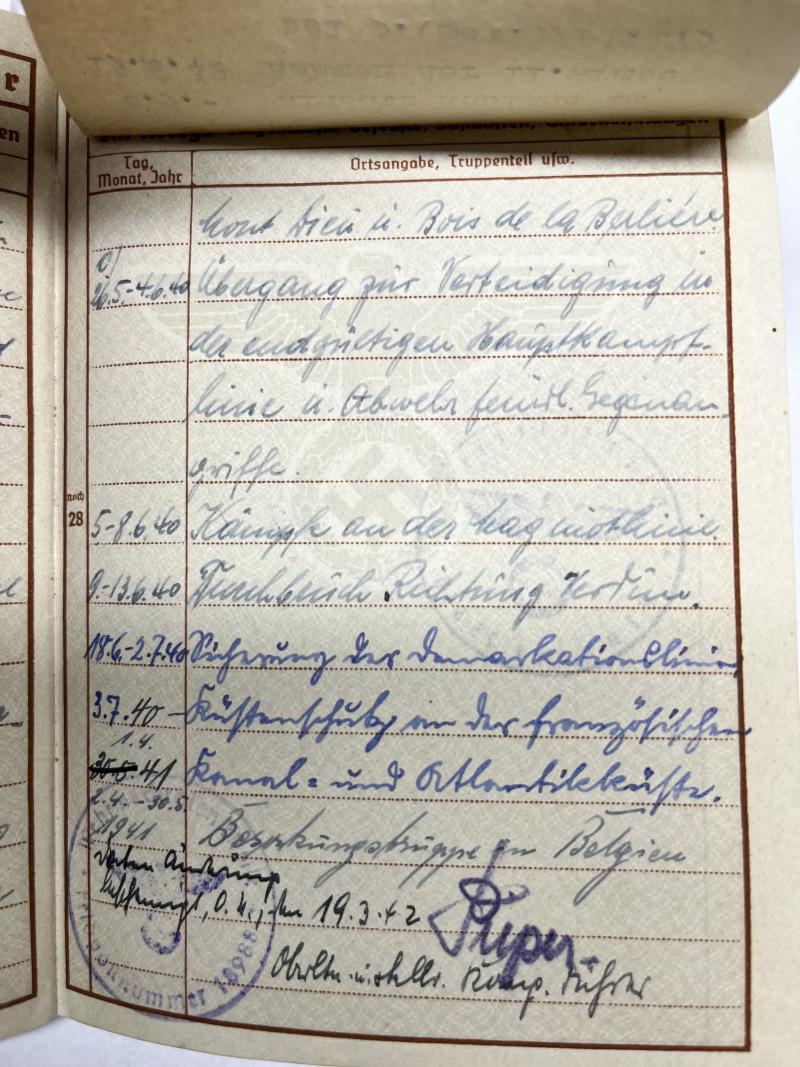 r
en
Tag,
Monat, Jahr
Ortsangabe, Truppenteil usw.
noch
28
Mont Dieu u. Bois de la Berlière.
c)
26.5.-4.6.40 Übergang zur Verteidigung in
der endgültigen Hauptkampf-
linie u. Abwehr feindl. Gegenan-
griffe.
5-8.6.40 Kämpfe an der Maginotlinie.
9.-13.6.40 Durchbruch Richtung Verdun.
18.6.-2.7.40 Sicherung der Demarkationslinie
3.7.40 - Küstenschutz an der französischen
1.4.
30.5.41 Kanal= und Atlantikküste.
2.4.-30.5.
1941 Besatzungstruppe in Belgien
Änderung
O.U., den 19.3.42
Oberltn. u. stellv. Komp. Führer
nummer 18988